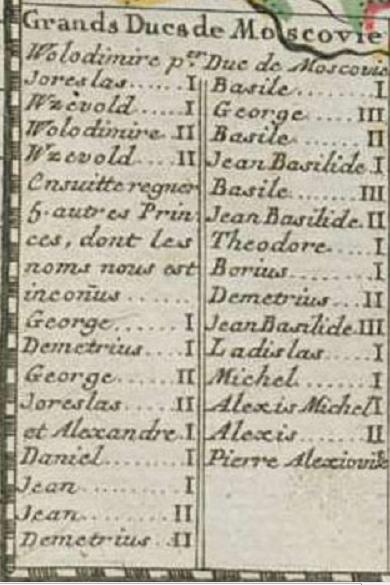 Grands Ducs de Moscovie
Wolodimire p.er Duc de Moscovie
Joreslas...... I
Wzevold.... I
Wolodimire. II
Wzevold.... II
Ensuitte regner
5. autres Prin
ces, dont les
noms nous est
inconus ......
George...... I
Demetrius.... I
George...... II
Joreslas..... II
et Alexandre. I
Daniel........ I
Jean.......... I
Jean......... II
Demetrius... II
Basile......... I
George...... III
Basile........ II
Jean Basilide. I
Basile....... III
Jean Basilide. II
Theodore..... I
Borius....... I
Demetrius... II
Jean Basilide. III
Ladislas...... I
Michel........ I
Alexis Michel I
Alexis....... II
Pierre Alexiovik